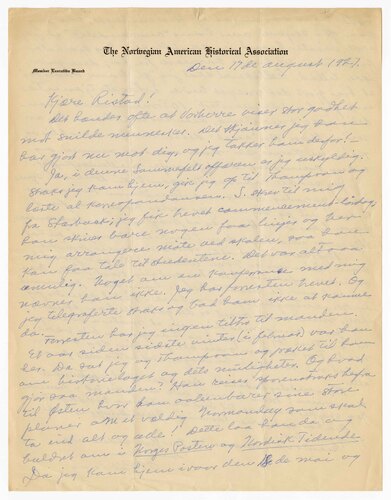 The Norwegian American Historical Association
Member Executive Board
Den 17de august 1927.
Kjære Ristad!
Det hendes ofte at Vorherre viser stor godhet
mot snilde mennesker. Det skjønner jeg han
har gjort nu mot dig, og jeg takker ham derfor! —
Ja, i denne affæren er jeg uskyldig.
Straks jeg kom hjem, gik jeg op til Thompson og
laste al korespondansen. S. skrev til mig
fra Starbuck; jeg fik brevet commencement-
han skriver bare nogen faa linjer og ber
mig arrangere møte ved skolen, saa han
kan faa tale til studentene. Det var alt saa
Noget om en konferanse med mig
nævner han ikke. Jeg har forresten brevet. Og
jeg telegraferte straks og bad ham ikke at komme
da.
Forresten har jeg ingen tiltro til manden.
Et aar siden sidste vinter (i februar) var han
her. Da sat jeg og Thompson og pratet til ham
om historielaget og dets muligheter. Og hvad
gjør saa manden? Han reiser sporenstraks herfra
til Østen hvor han aabenbarer sine store
planer om et vældig Normandsy som skal
ta ind alt og alle! Dette laa han da og
buldret om i Norges Posten og Nordisk Tidende
Da jeg kom hjem ivaar den 18de mai og